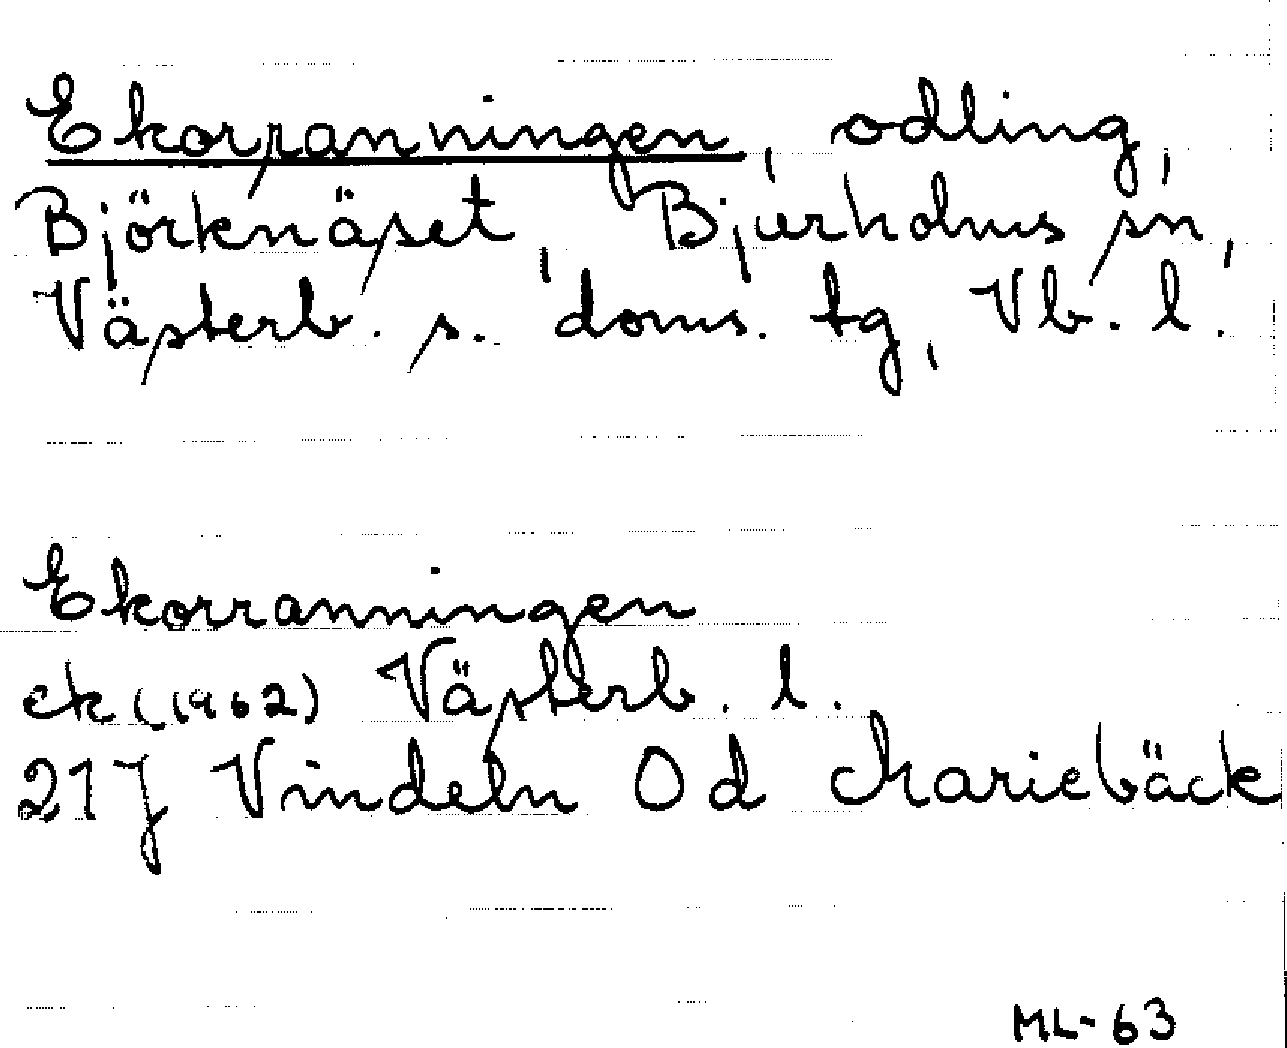 Ekorranningen, odling,
Björknäset, Bjurholms sn,
Västerb. s. doms. tg, Vb. l.
Ekorranningen
ek (1962) Västerb. l.
21J Vindeln Od Mariebäck
ML-63